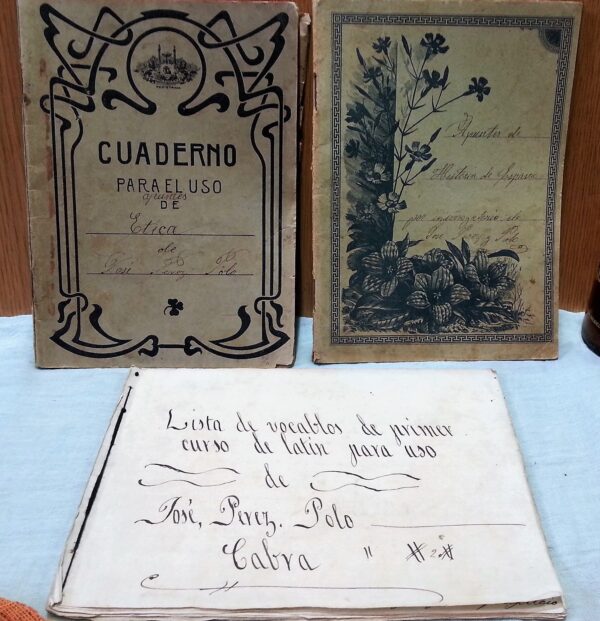 CUADERNO
PARA EL USO
apuntes
DE
Etica
de
José Perez Polo
Apuntes de
Historia de España
por
José Perez Polo
Lista de vocablos de primer
curso de latin para uso
de
José, Perez, Polo
Cabra " # 2 #